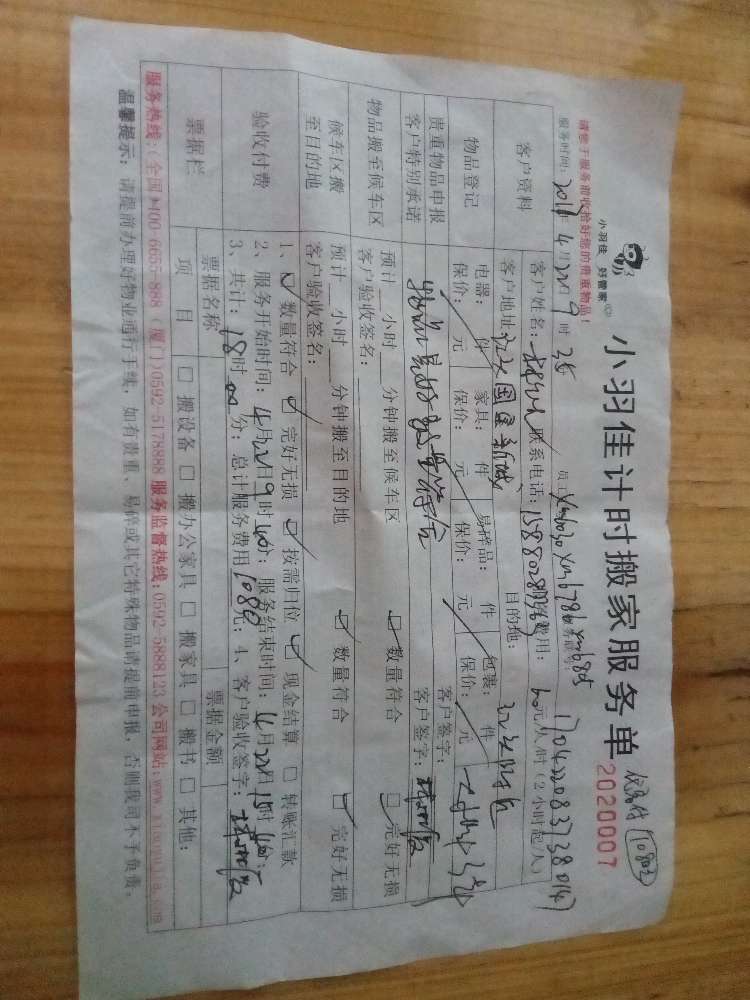 小羽佳 好管家
小羽佳计时搬家服务单
2020007
1080
请您于服务前收拾好您的贵重物品！
服务时间: 4月22日9时
客户资料
客户姓名: 联系电话: 费用: 60元/人/时(2小时起/人)
客户地址: 目的地:
物品登记
电器: 件 家具: 件 易碎品: 件 包装: 件
保价: 元 保价: 元 保价: 元 保价: 元
贵重物品申报
客户特别承诺
物品完好数量符合
客户签字:
客户签字:
物品搬至候车区
预计 小时 分钟搬至候车区 数量符合 完好无损
客户验收签名:
候车区搬至目的地
预计 小时 分钟搬至目的地 数量符合 完好无损
客户验收签名:
验收付费
1、 数量符合 完好无损 按需归位 现金结算 转账汇款
2、服务开始时间: 4月22日9时40分; 服务结束时间: 4月22日15时40分;
3、共计: 18时00分; 总计服务费用1080元; 4、客户验收签字:
票据栏
票据名称 票据金额
项目 搬设备 搬办公家具 搬家具 搬书 其他:
服务热线:(全国)400-6655-888 (厦门)0592-5178888 服务监督热线:0592-5888123 公司网站:www.xiaoyujia.com
温馨提示: 请提前办理好物业通行手续, 如有贵重、易碎或其它特殊物品请提前申报, 否则我司不予负责。